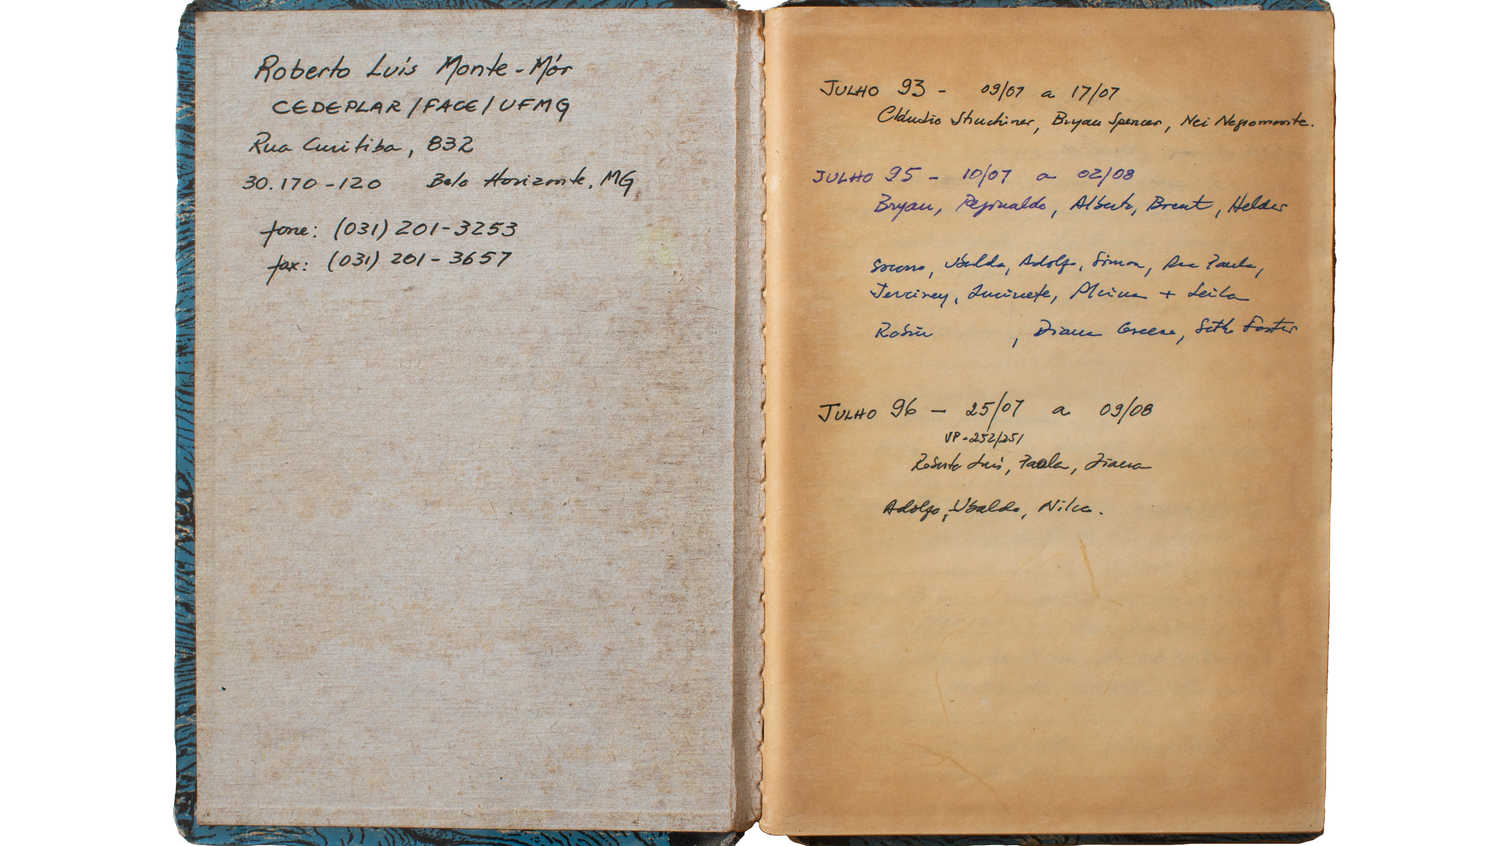 Roberto Luís Monte-Mór
CEDEPLAR/FACE/UFMG
Rua Curitiba, 832
30.170-120 Belo Horizonte, MG
fone: (031) 201-3253
fax: (031) 201-3657
JULHO 93 - 09/07 a 17/07
Cláudio, Bryan Spencer, Nei Negromonte.
JULHO 95 - 10/07 a 02/08
Bryan, Reginaldo, Alberto, Brent, Helder
Ubaldo, Adolfo, Simon, Ana Paula,
+ Leila
Robin , Diana Greene, Seth Foster
JULHO 96 - 25/07 a 09/08
VP-252/251
Roberto Luís, Paola, Diana
Adolfo, Ubaldo, Nilca.